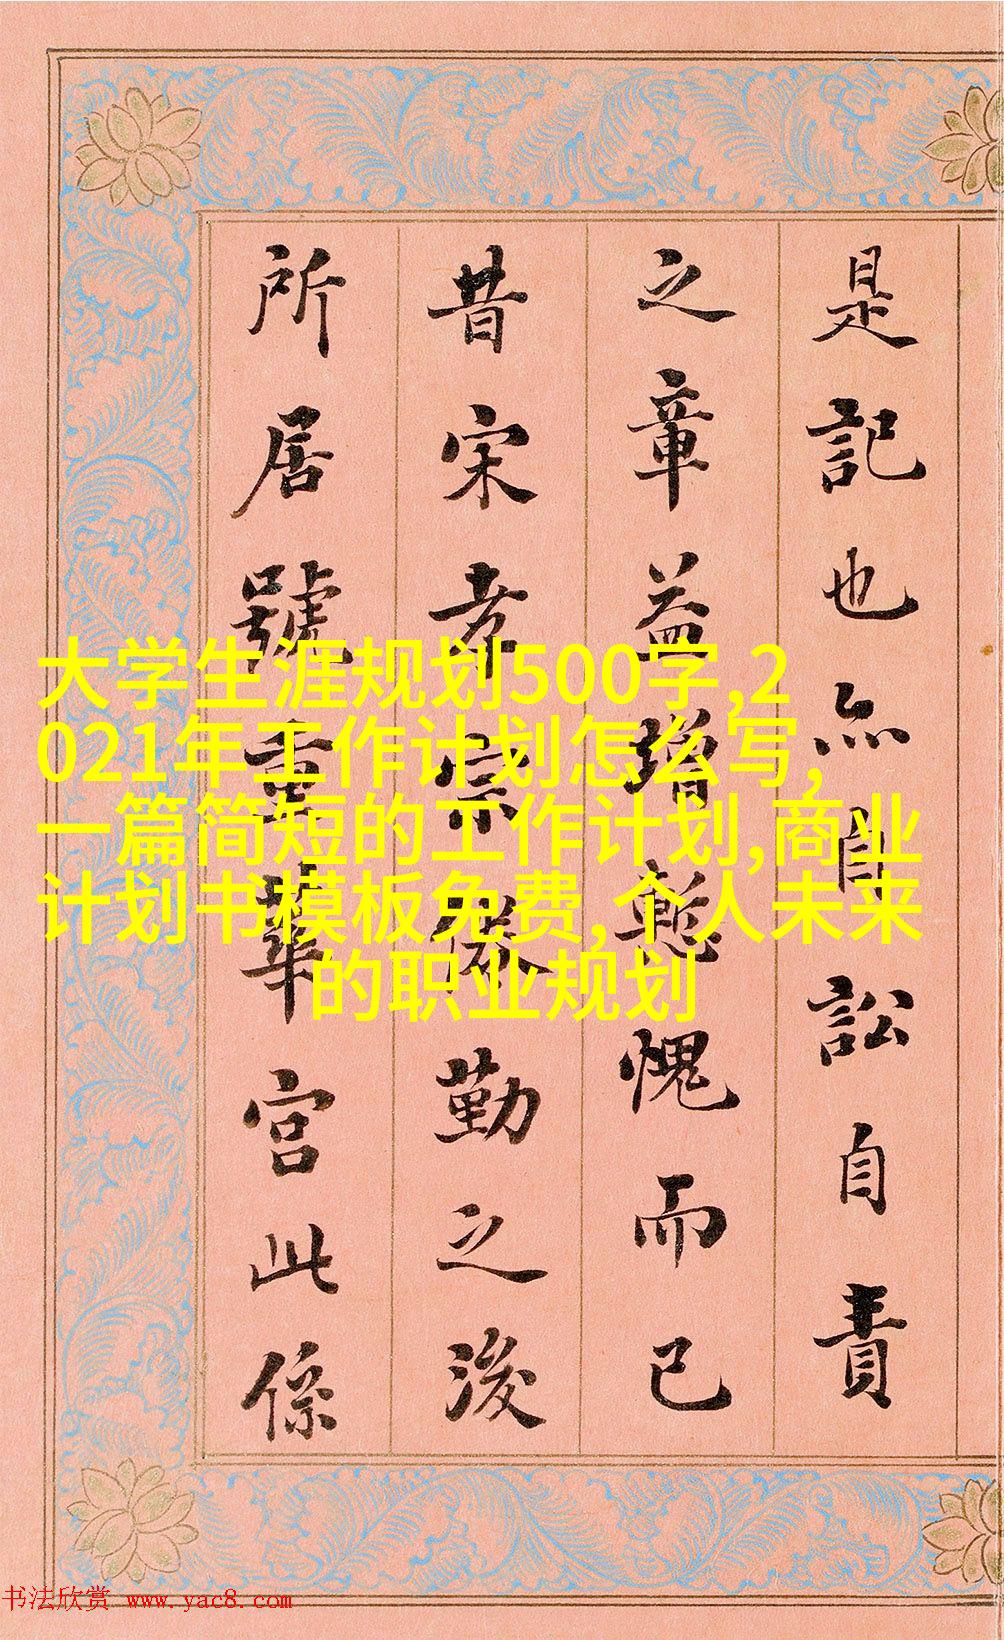 是記也亦自訟自責
之章益增慙愧而已
昔宋孝宗儆勤之後
所居號重華宮此係
大学生涯规划500字,2
021年工作计划怎么写,
一篇简短的工作计划,商业
计划书模板免费,个人未来
的职业规划
书法欣赏 www.yac8.com